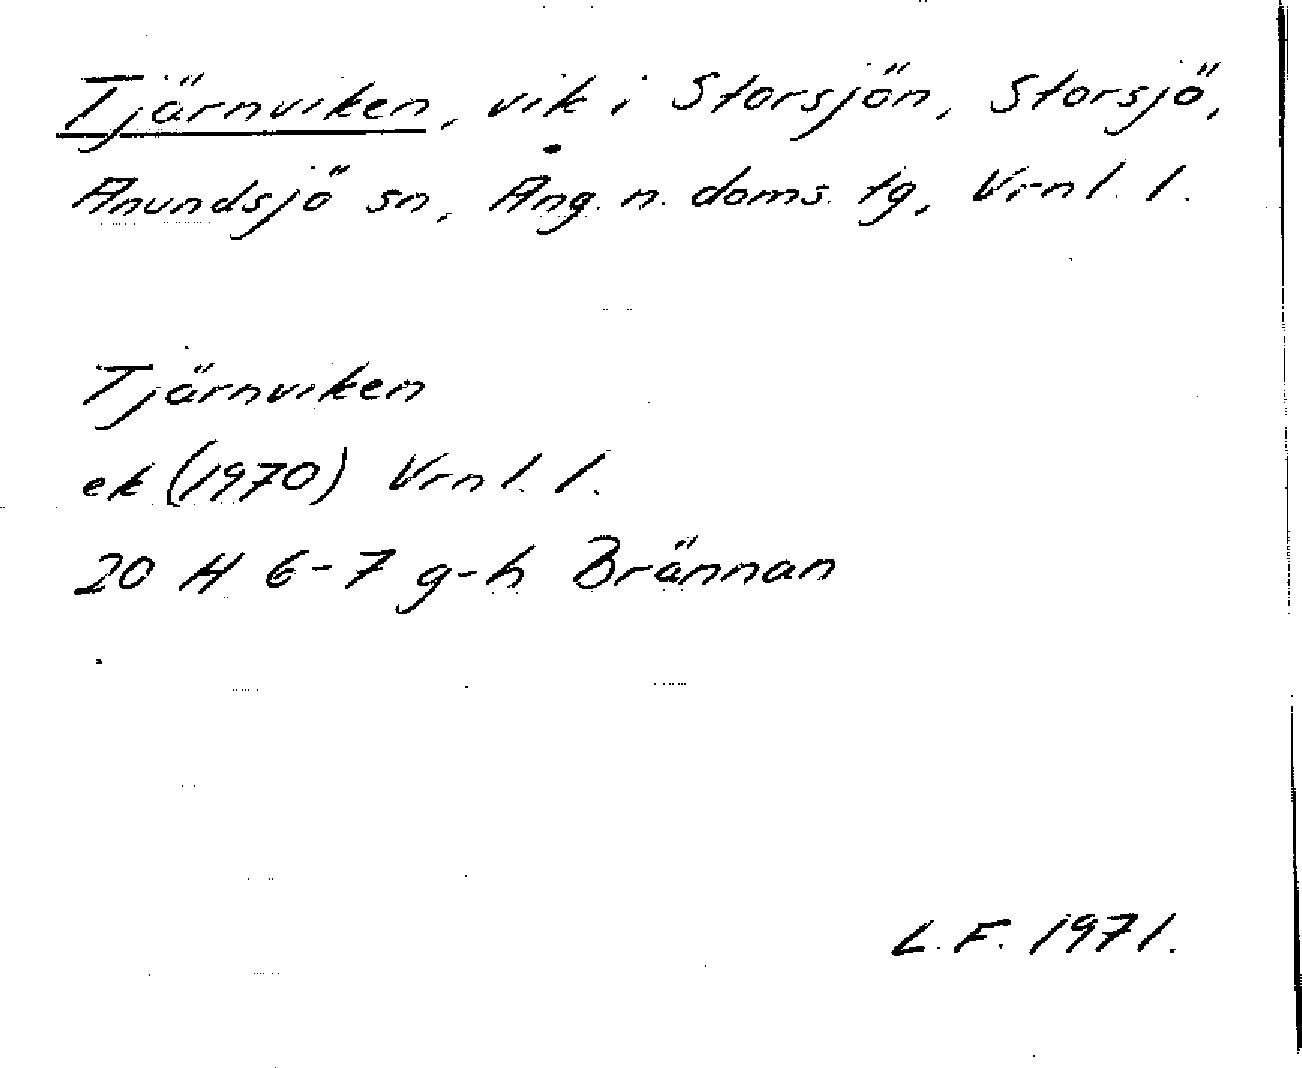 Tjärnviken, vik i Storsjön, Storsjö,
Anundsjö sn, Ång. n. doms. tg, Vrnl. l.
Tjärnviken
ek (1970) Vrnl. l.
20 H 6-7 g-h Brännan
L. F. 1971.